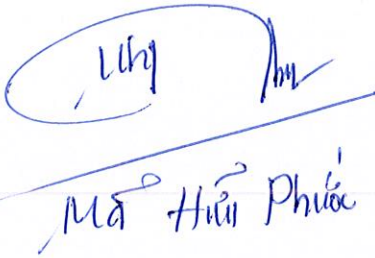 Mã Hữu Phước